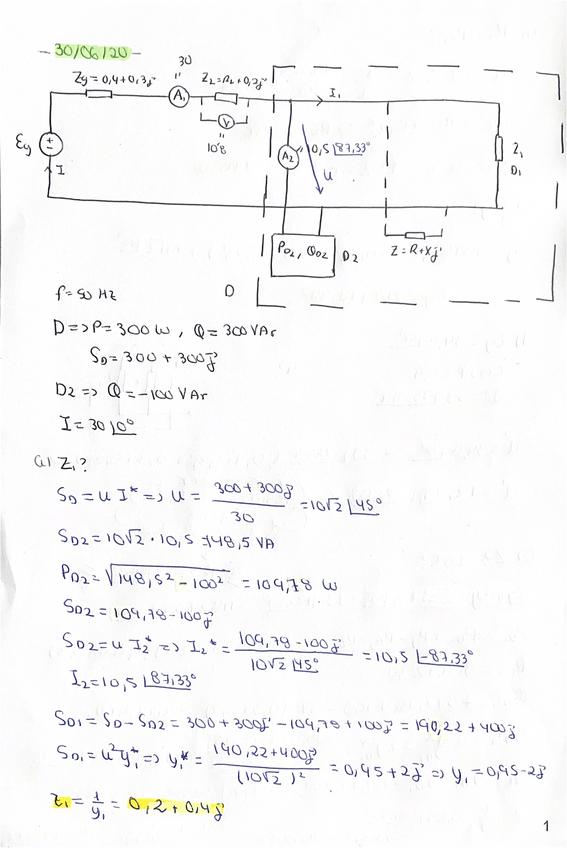 - 30/06/20 -
30
"
Zg = 0,4+0,3j
A1
Z2=R2+0,2j
V
"
10'8
I1
Eg
±
I
A2
"10,5 |87,33°
u
Z1
D1
PD2, QD2
D2
Z = R+Xj
f = 50 Hz
D
D => P = 300 W, Q = 300 VAr
SD = 300 + 300j
D2 => Q = -100 VAr
I = 30 |0°
a) Z1?
SD = u I* => u = 300 + 300j / 30 = 10√2 |45°
SD2 = 10√2 · 10,5 = 148,5 VA
PD2 = √148,5² - 100² = 109,78 W
SD2 = 109,78 - 100j
SD2 = u I2* => I2* = 109,78 - 100j / 10√2 |45° = 10,5 |-87,33°
I2 = 10,5 |87,33°
SD1 = SD - SD2 = 300 + 300j - 109,78 + 100j = 190,22 + 400j
SD1 = u² y1* => y1* = 190,22 + 400j / (10√2)² = 0,95 + 2j => y1 = 0,95 - 2j
Z1 = 1 / y1 = 0,2 + 0,4j
1